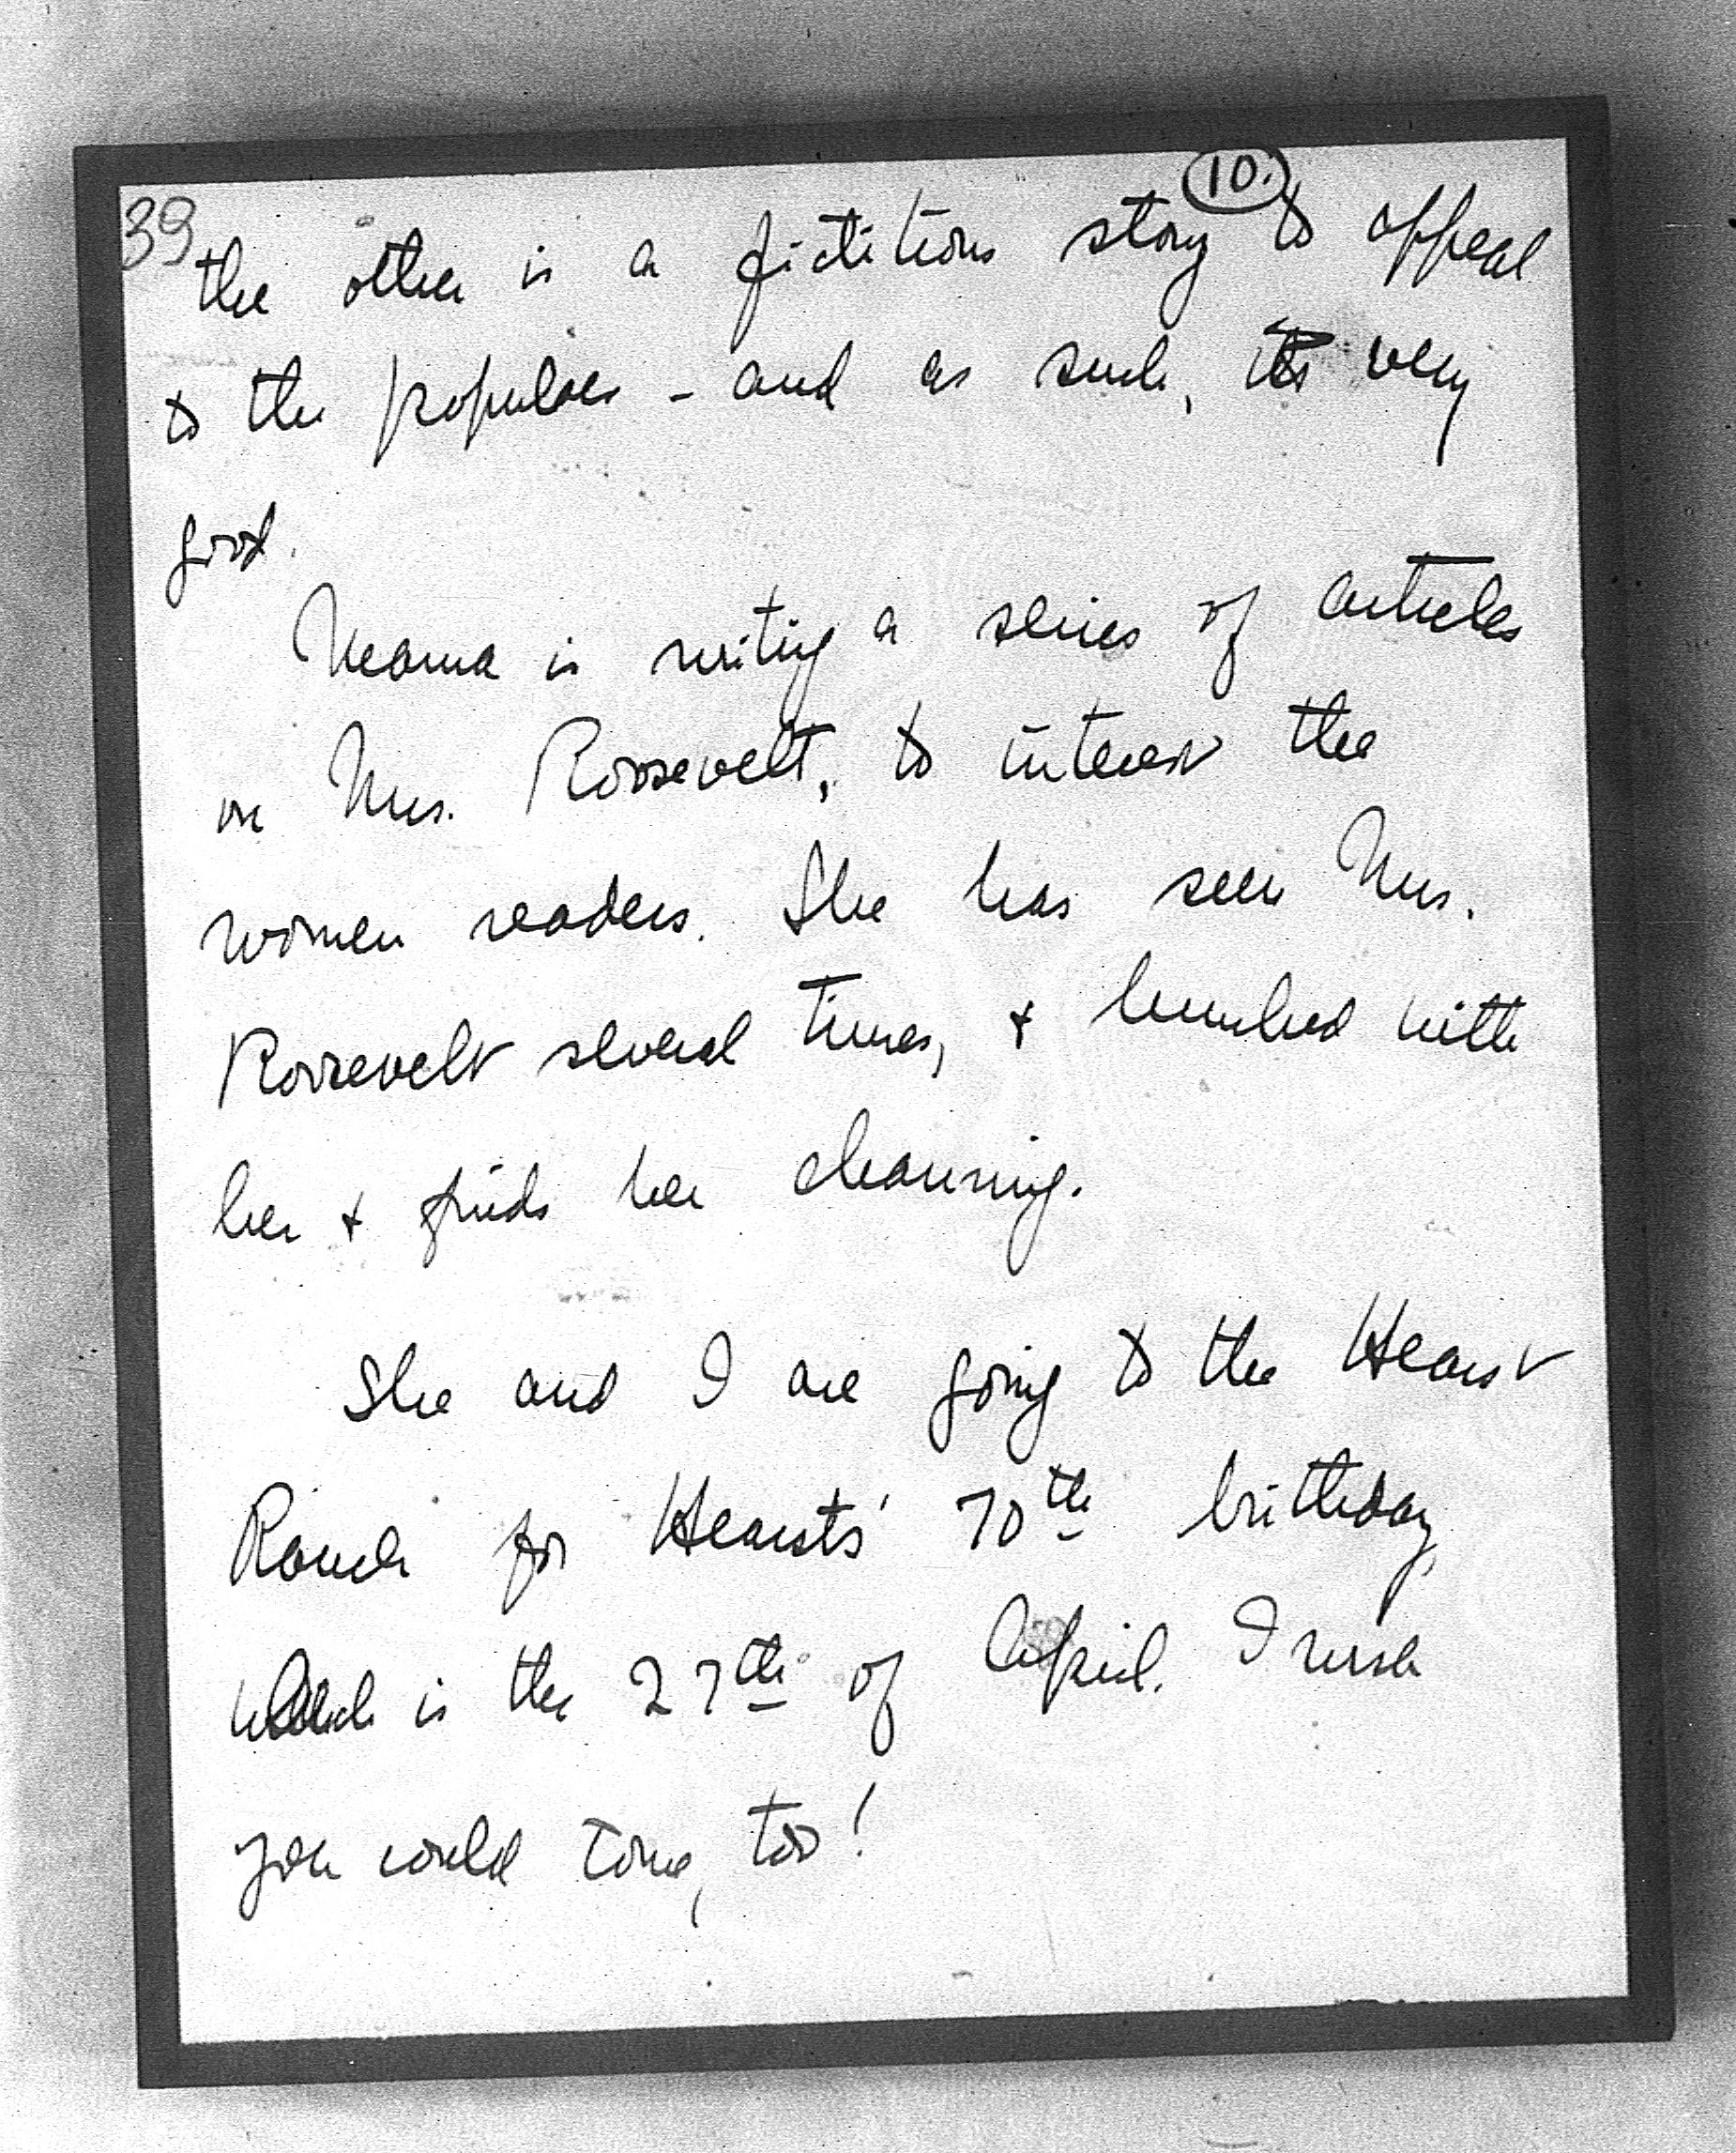 10.
39
the other is a fictitious story to appeal
to the populace - and as such, its very
good.
Mama is writing a series of articles
on Mrs. Roosevelt, to interest the
women readers. She has seen Mrs.
Roosevelt several times, + lunched with
her + finds her charming.
She and I are going to the Hearst
Ranch for Hearsts' 70th birthday,
which is the 27th of April. I wish
you could come, too!